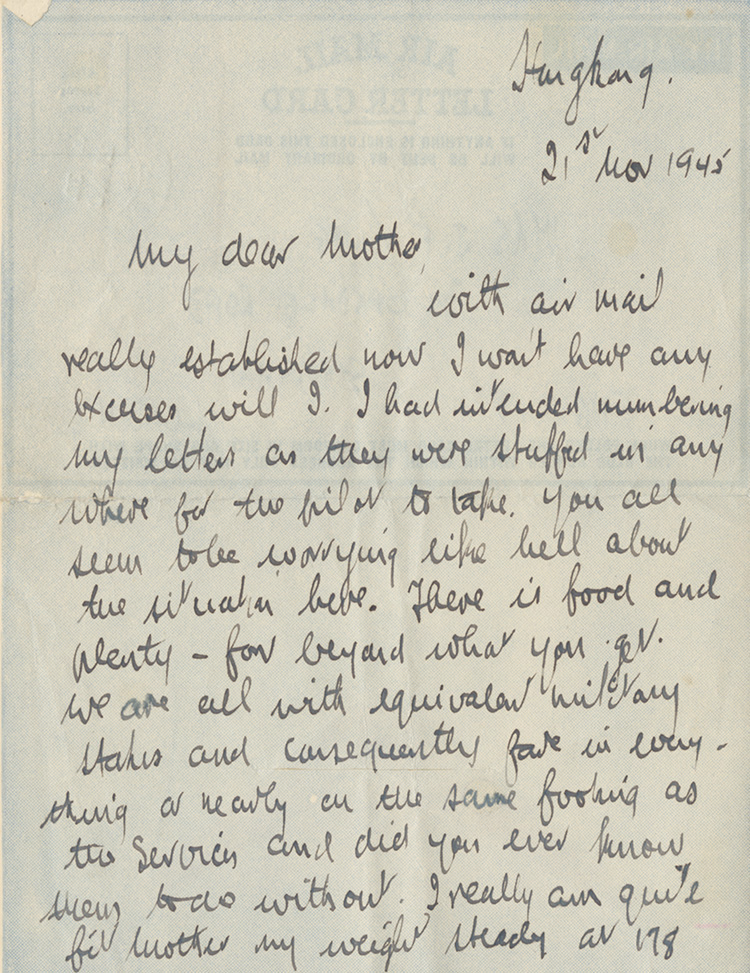 Hongkong.
21st Nov 1945
My dear Mother,
with air mail
really established now I won't have any
excuses will I. I had intended numbering
my letters as they were stuffed in any
where for the pilot to take. You all
seem to be worrying like hell about
the situation here. There is food and
plenty - far beyond what you get.
We are all with equivalent military
status and consequently fare in every-
thing or nearly on the same footing as
the Services and did you ever know
them to do without. I really am quite
fit Mother my weight steady at 178
AIR MAIL
LETTER CARD
IF ANYTHING IS ENCLOSED THIS CARD
WILL BE SENT BY ORDINARY MAIL